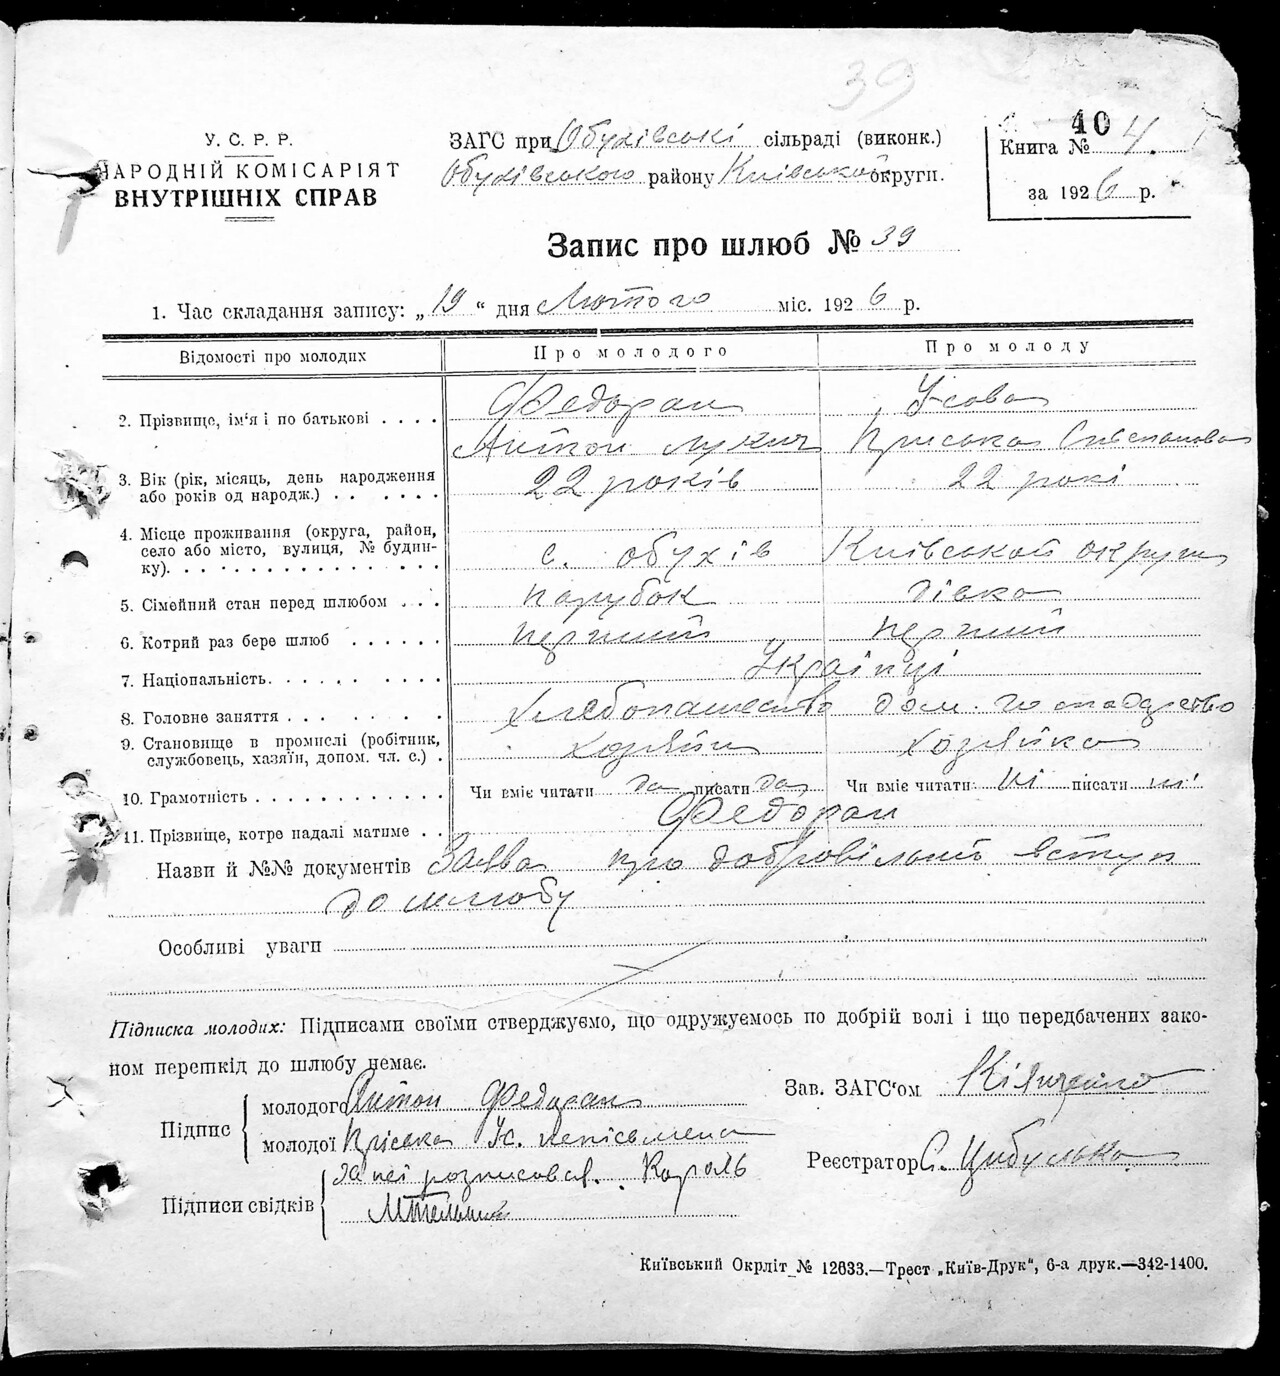 39
У. С. Р. Р.
НАРОДНІЙ КОМІСАРІЯТ
ВНУТРІШНІХ СПРАВ
ЗАГС при Обухівські сільраді (виконк.)
Обухівського району Київської округи.
40
Книга № 4.
за 1926 р.
Запис про шлюб № 39
1. Час складання запису: „19“ дня Лютого міс. 1926 р.
Відомості про молодих
Про молодого
Про молоду
2. Прізвище, ім‘я і по батькові
Федоран
Антон Лукич
Усова
Пріська Степанова
3. Вік (рік, місяць, день народження
або років од народж.)
22 років
22 рокі
4. Місце проживання (округа, район,
село або місто, вулиця, № будин-
ку)
с. Обухів Київської округи
5. Сімейний стан перед шлюбом
парубок
дівка
6. Котрий раз бере шлюб
перший
перший
7. Національність
Українці
8. Головне заняття
хлебопашество
дом. господарство
9. Становище в промислі (робітник,
службовець, хазяїн, допом. чл. с.)
хозяйин
хозяйка
10. Грамотність
Чи вміє читати да писати да
Чи вміє читати ні писати ні
11. Прізвище, котре надалі матиме
Федоран
Назви й №№ документів Заява про добровільний вступ
до шлюбу
Особливі уваги
Підписка молодих: Підписами своїми стверджуємо, що одружуємось по добрій волі і що передбачених зако-
ном перешкід до шлюбу немає.
Підпис
молодого Антон Федоран
молодої Пріська Ус. непісьмена
за неї розписовся. Король
Підписи свідків
Зав. ЗАГС‘ом
Реєстратор С. Цибулька
Київський Окрліт № 12633.—Трест „Київ-Друк“, 6-а друк.—342-1400.